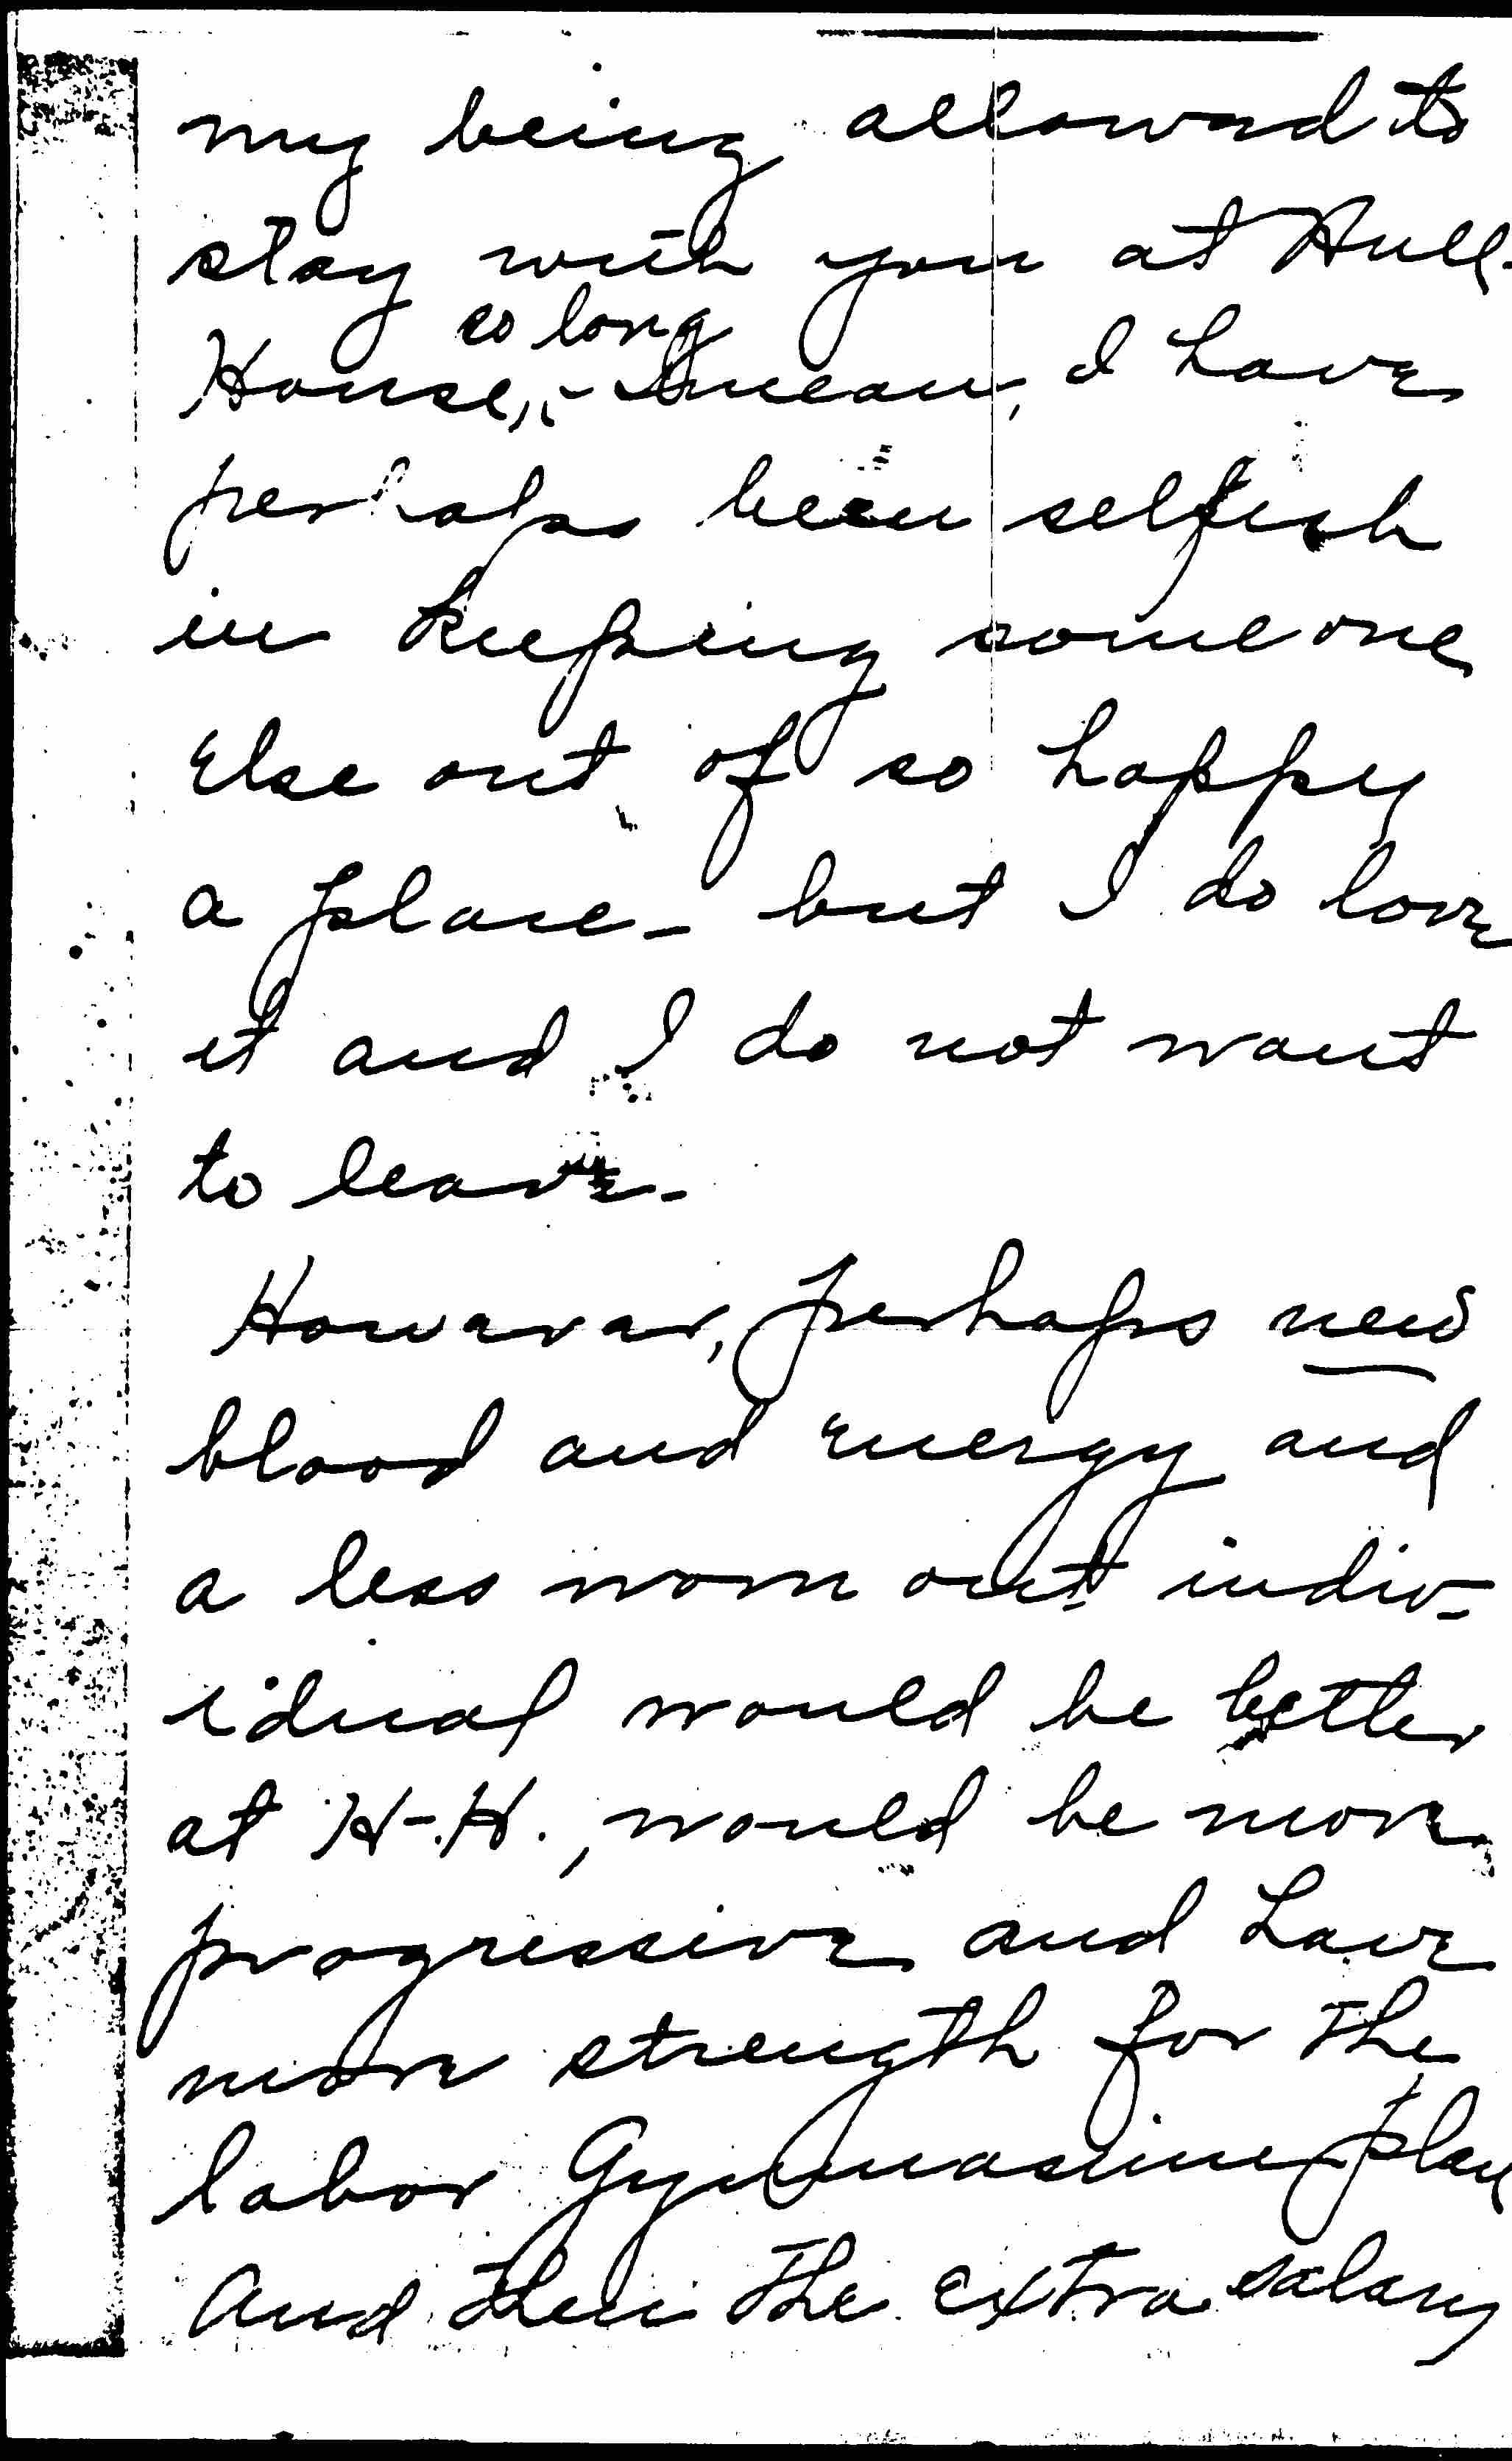 my being allowed to
stay with you at Hull-
so long
House, - I mean, I have
perhaps been selfish
in keeping someone
else out of so happy
a place - but I do love
it and I do not want
to leave -
However, perhaps new
blood and energy and
a less worn out indiv-
idual would be better
at H-H., would be more
progressive and have
more strength for the
labor Gymnasium plan
And then the extra salary